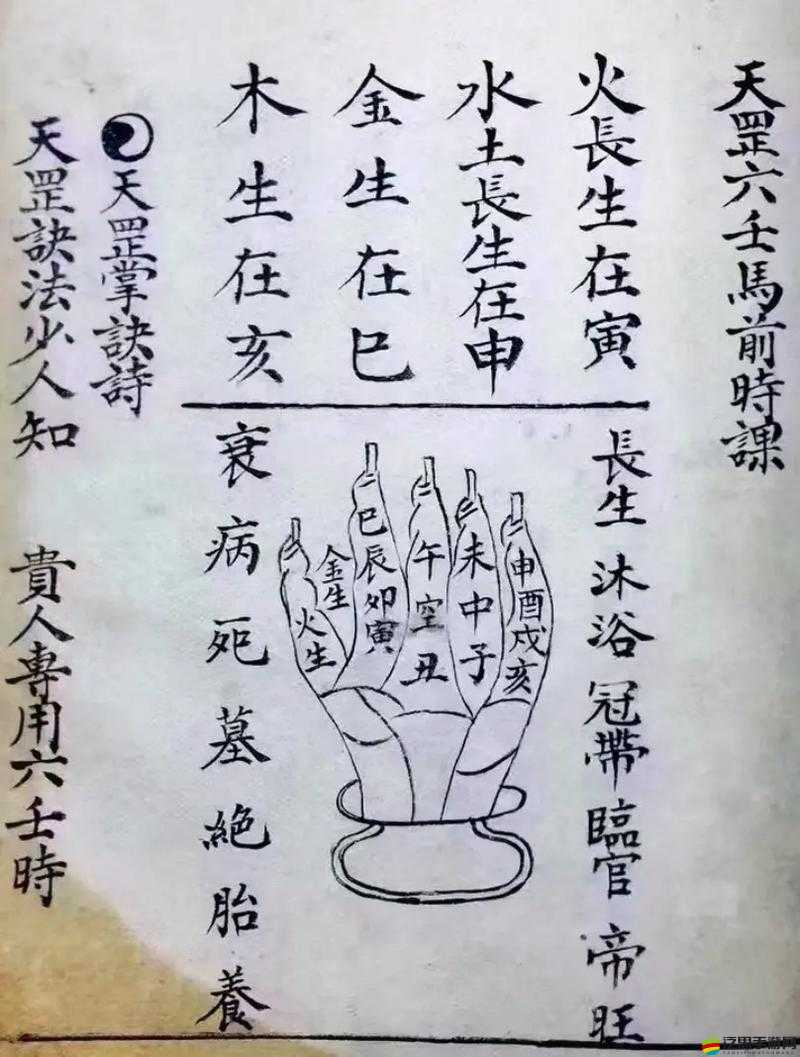 天罡六壬馬前時課
火長生在寅
水土長生在申
金生在巳
木生在亥
長生 沐浴 冠帶 臨官 帝旺
申酉戌亥
未中子
午空丑
巳辰卯寅
金生
火生
衰病死墓絕胎養
天罡掌訣詩
天罡訣法少人知 貴人專用六壬時